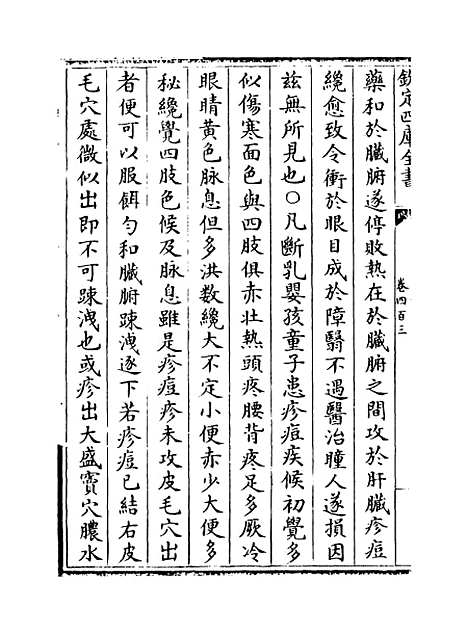 欽定四庫全書
卷四百三
藥和於臟腑遂停敗熱在於臟腑之間攻於肝臟疹痘
纔愈致令衝於眼目成於障翳不遇醫治瞳人遂損因
兹無所見也○凡斷乳嬰孩童子患疹痘疾候初覺多
似傷寒面色與四肢俱赤壯熱頭疼腰背疼足多厥冷
眼睛黄色脉息但多洪数纔大不定小便赤少大便多
秘纔覺四肢色候及脉息雖是疹痘疹未攻皮毛穴出
者便可以服餌勻和臟腑踈洩逐下若疹痘已結右皮
毛穴處微似出即不可踈洩也或疹出大盛竇穴膿水